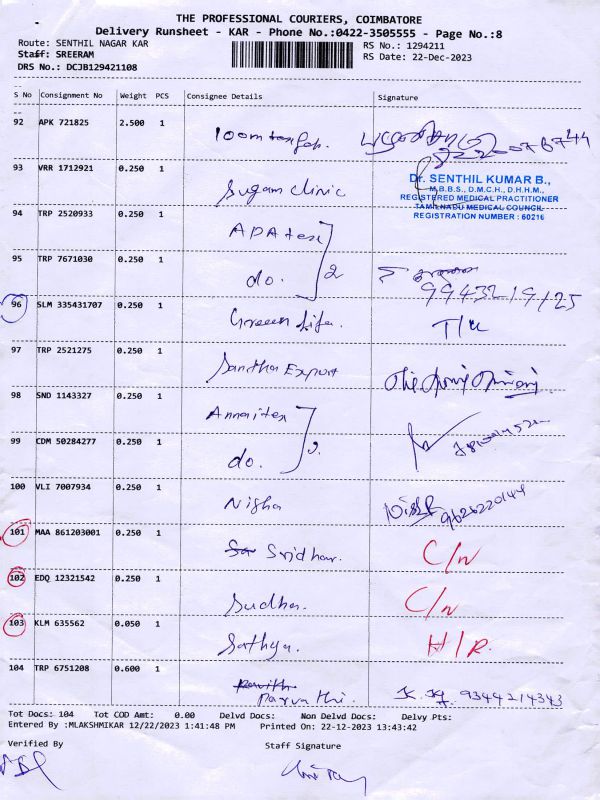 THE PROFESSIONAL COURIERS, COIMBATORE
Delivery Runsheet - KAR - Phone No.:0422-3505555 - Page No.:8
Route: SENTHIL NAGAR KAR
RS No.: 1294211
Staff: SREERAM
RS Date: 22-Dec-2023
DRS No.: DCJB129421108
S No Consignment No Weight PCS Consignee Details Signature
92 APK 721825 2.500 1
93 VRR 1712921 0.250 1 Sugam Clinic
Dr. SENTHIL KUMAR B.,
M.B.B.S., D.M.C.H., D.H.H.M.,
REGISTERED MEDICAL PRACTITIONER
TAMILNADU MEDICAL COUNCIL
REGISTRATION NUMBER : 60216
94 TRP 2520933 0.250 1 APA tex
95 TRP 7671030 0.250 1 do. 2
9943219125
96 SLM 335431707 0.250 1 Green Life. T/U
97 TRP 2521275 0.250 1 Santha Export
98 SND 1143327 0.250 1 Annai tex
99 CDM 50284277 0.250 1 do.
100 VLI 7007934 0.250 1 Nisha 9626220144
101 MAA 861203001 0.250 1 Sridhar. C/N
102 EDQ 12321542 0.250 1 Sudha. C/N
103 KLM 635562 0.050 1 Sathya. H/R.
104 TRP 6751208 0.600 1 Parvathi. 9344214343
Tot Docs: 104 Tot COD Amt: 0.00 Delvd Docs: Non Delvd Docs: Delvy Pts:
Entered By :MLAKSHMIKAR 12/22/2023 1:41:48 PM Printed On: 22-12-2023 13:43:42
Verified By Staff Signature